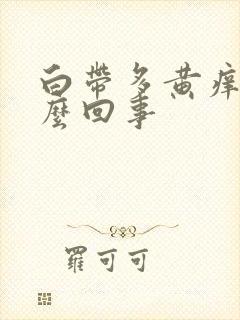 白帶多黃痒
麼回事
羅可可